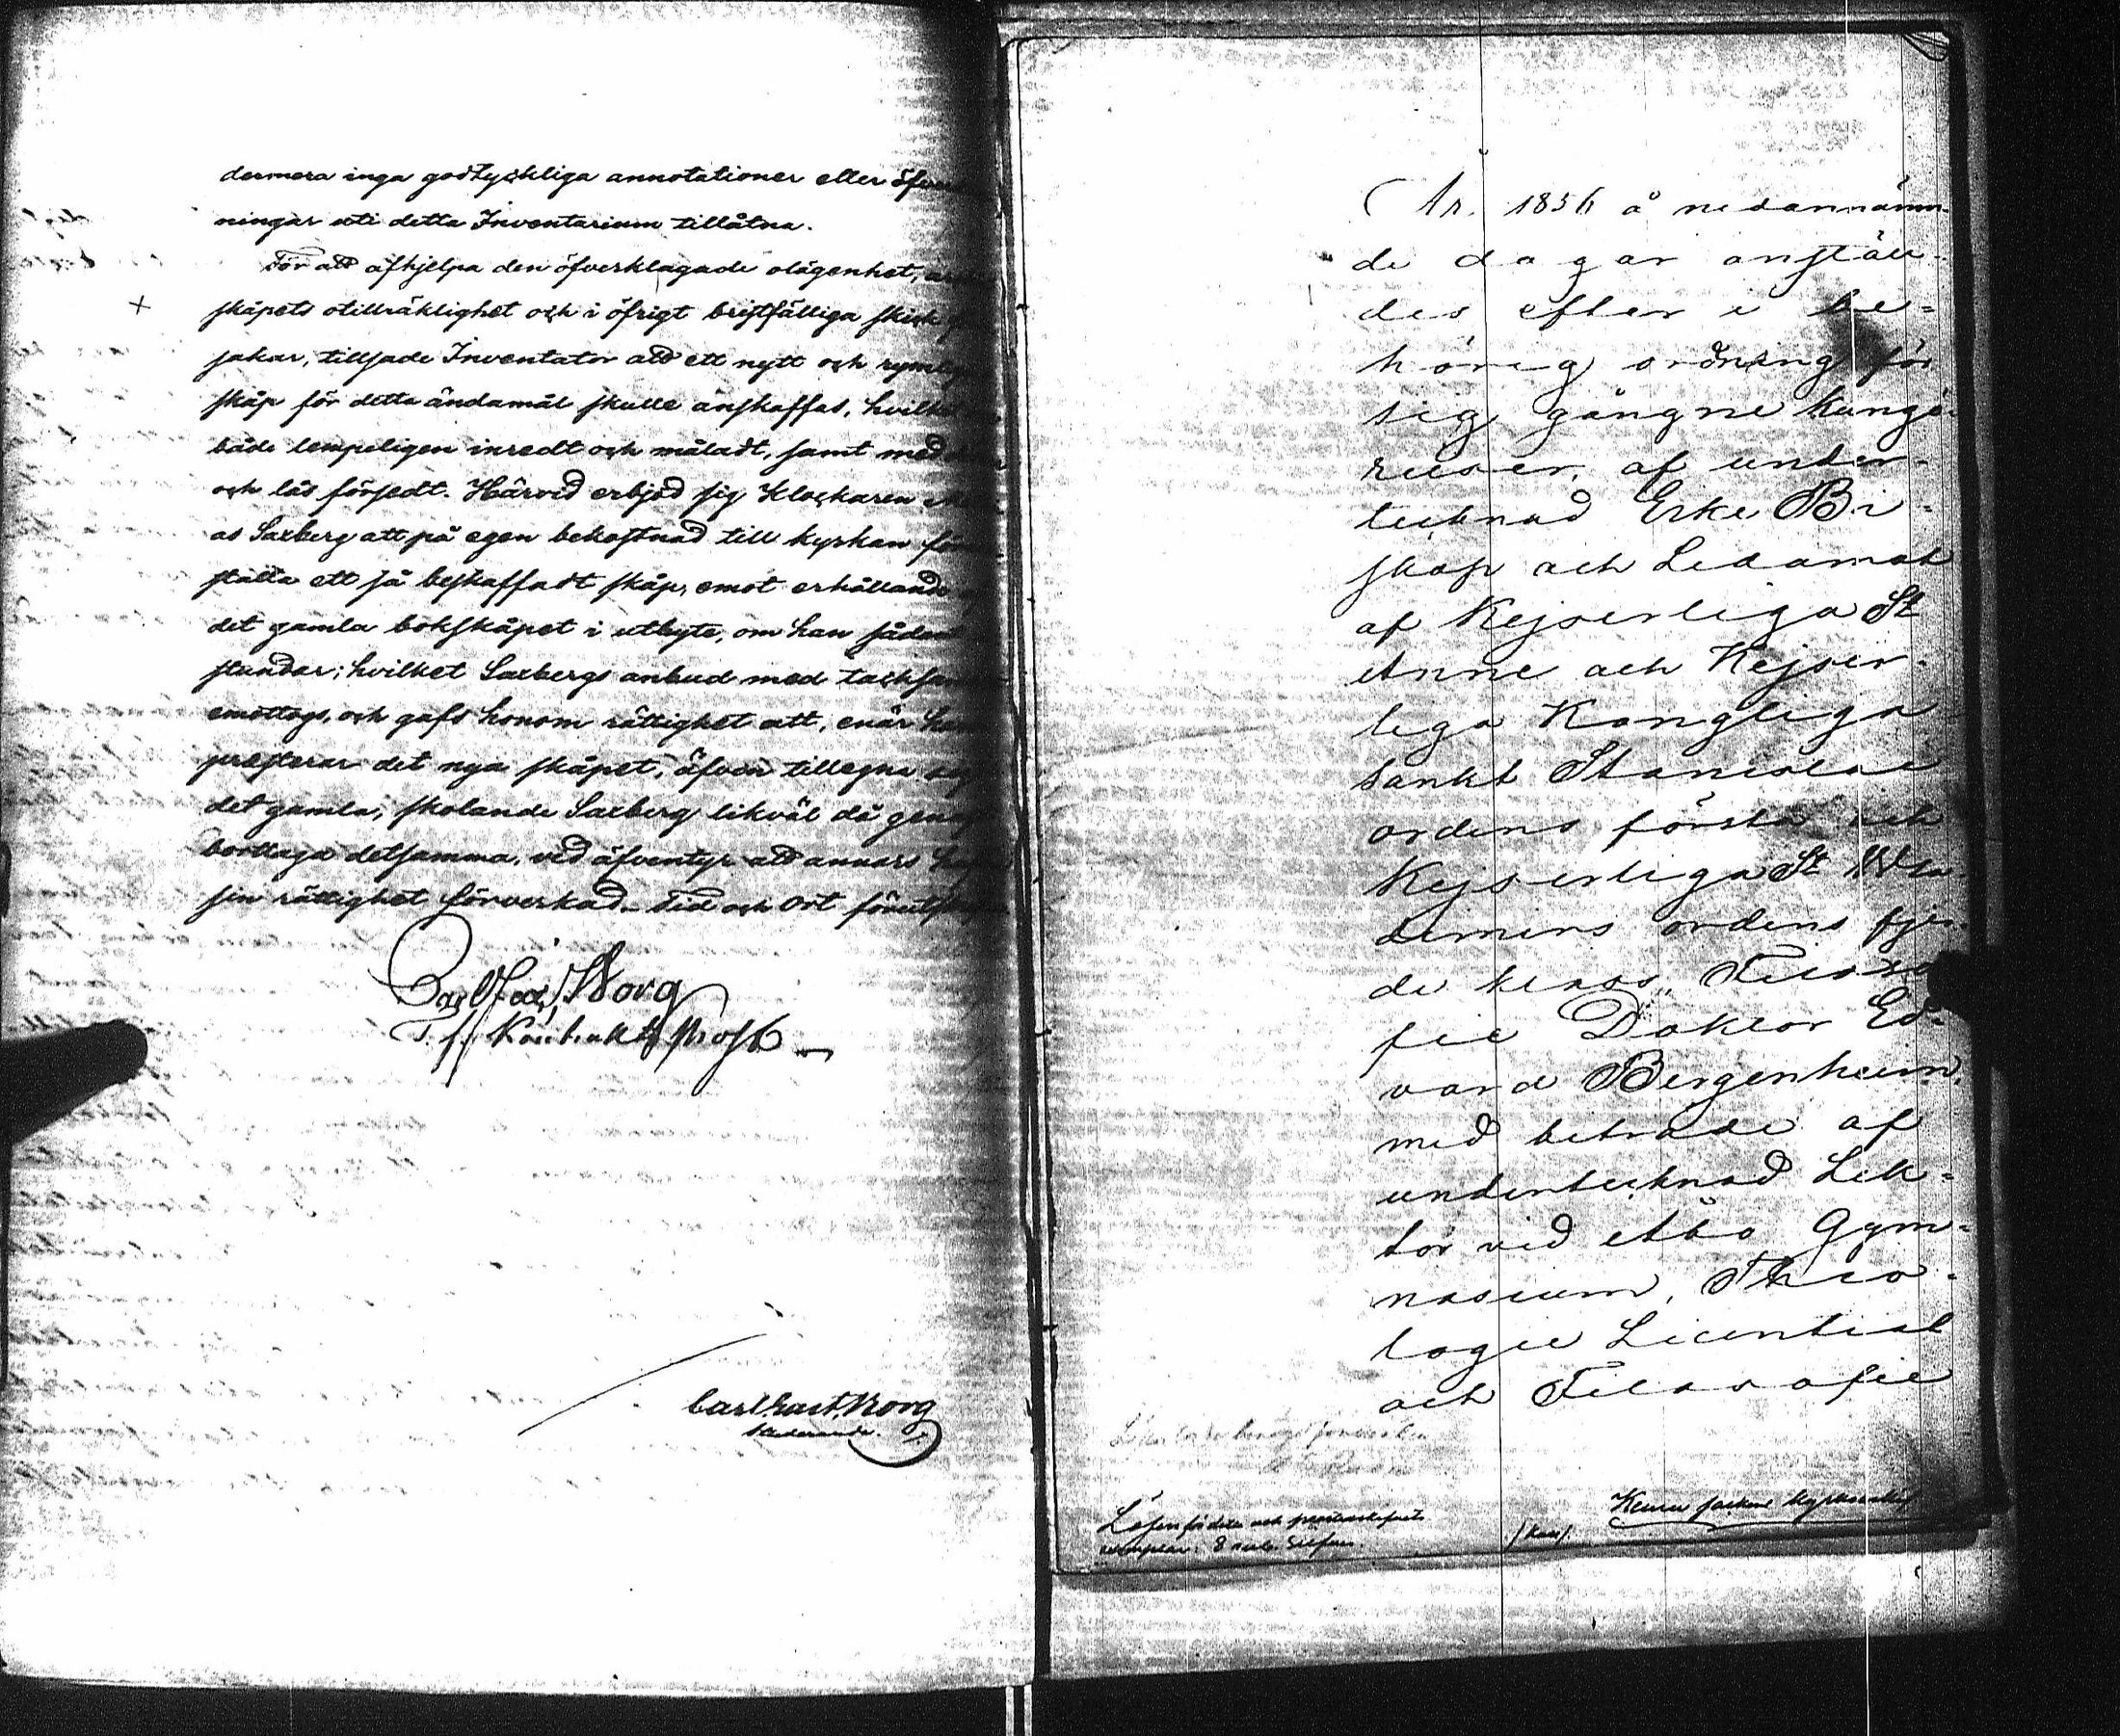 dermera inga godtyckliga annotationer eller öfver
ningar uti detta Inventarium tillåtna.
För att afhjelpa den öfverklagade olägenhet,
skåpets otillräklighet och i öfrigt bristfälliga skick
sakar, tillsade Inventator att ett nytt och
skåp för detta ändamål skulle anskaffas, hvilket
både lempeligen inredt och måladt, samt med
och lås försedt. Härvid erbjöd sig Klockaren
as Saxberg att på egen bekostnad till kyrkan
ställa ett så beskaffadt skåp, emot erhållande
det gamla bokskåpet i utbyte, om han
stundar; hvilket Saxbergs anbud med
emottogs, och gafs honom rättighet att, enär
presterar det nya skåpet, äfven tillegna
det gamla; skolande Saxberg likväl då
borttaga detsamma, vid äfventyr att annars
sin rättighet förverkad. Tid och Ort
Borg
T. f. Kontrakts Prost
Carl Gust. Borg
År 1856 å nedannämn-
de dagar anstäl-
des efter i be-
hörig ordning för
sig gångne kungö
relser, af under-
tecknad Erke Bi-
skop och Ledamot
af Kejserliga St
Anne och Kejser-
liga Kongliga
Sankt Stanislai
ordens första och
Kejserliga St Wla-
dimirs ordens fjer
de klass, Filoso
fie Doktor Ed-
vard Bergenheim,
med beträde af
undertecknad Lek-
tor vid Åbo Gym-
nasium, Theo-
logie Licentiat
och Filosofie